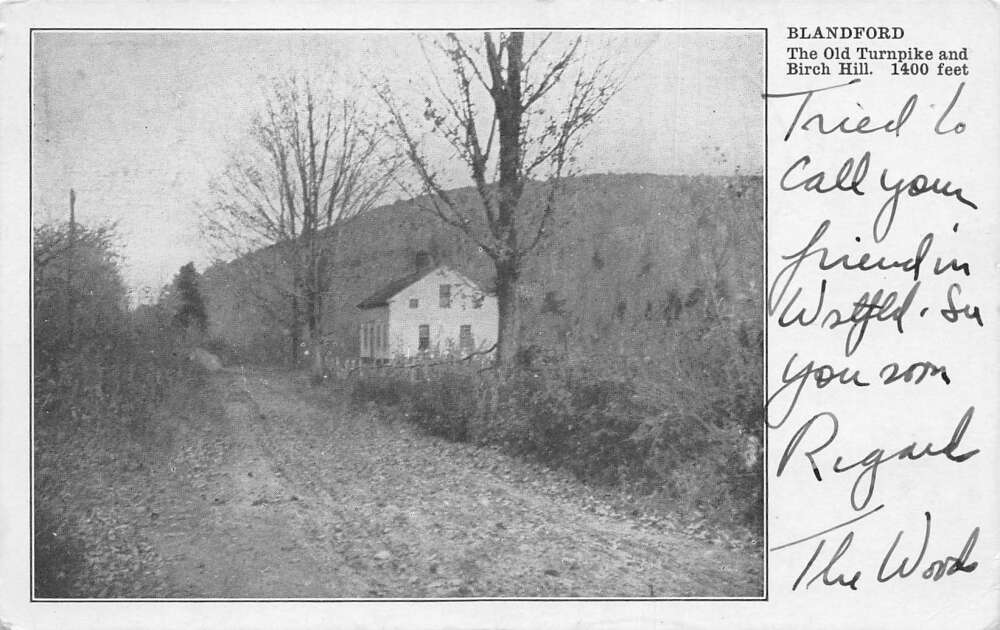 BLANDFORD
The Old Turnpike and
Birch Hill. 1400 feet
Tried to
Call your
friend in
Wstfld. See
you soon
Regards
The Woods